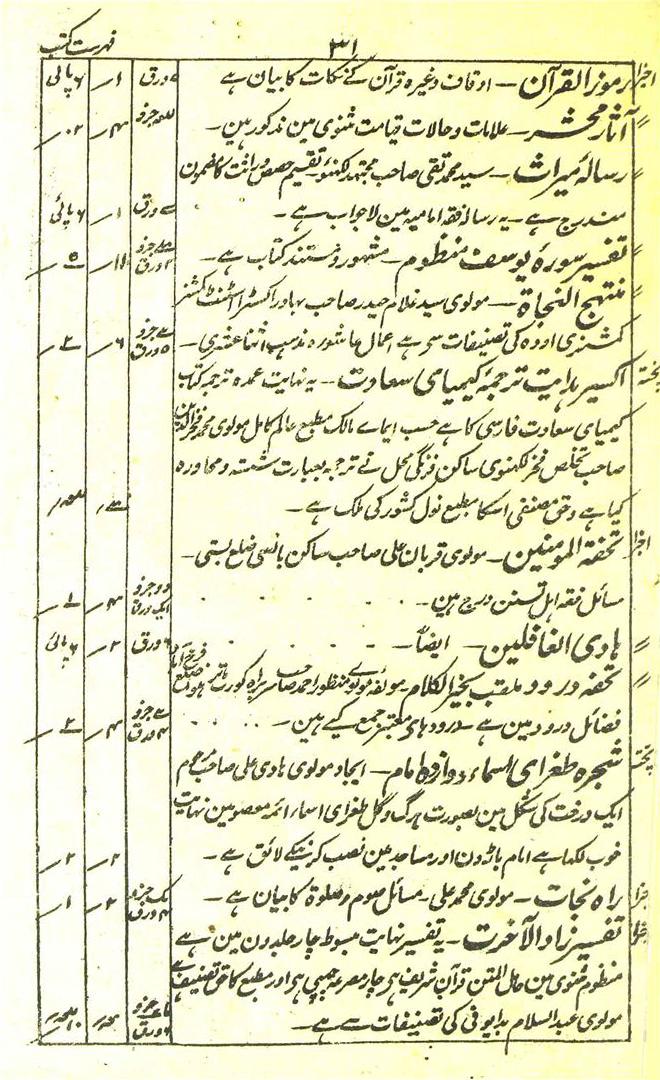 فہرست کتب
۳۱
اجزا رموز القرآن ــ اوقاف وغیرہ قرآن کے نکات کا بیان ہے ورق ۱ر ۶ پائی
〃 آثار محشر ــ علامات و حالات قیامت مثنوی مین مذکور ہین۔ جزو ۴ر ۲ر
〃 رسالۂ میراث ــ سید محمد تقی صاحب مجتہد لکھنؤ۔ تقسیم حصص وراثت کا مضمون
مندرج ہے۔ یہ رسالہ فقہ امامیہ مین لاجواب ہے۔ ورق ۱ر ۶ پائی
〃 تفسیر سورۂ یوسف منظوم ــ مشہور و مستند کتاب ہے۔ جزو ورق ۵ر
〃 منتہج النجاۃ ــ مولوی سید غلام حیدر صاحب بہادر اکسٹرا اسسٹنٹ کمشنر
کمشنری اودہ کی تصنیفات سے ہے اعمال عاشورہ مذہب اثنا عشری۔ جزو ۵ ورق ۶ر ۳ر
پختہ اکسیر ہدایت ترجمۂ کیمیای سعادت ــ یہ نہایت عمدہ ترجمہ کتاب
کیمیای سعادت فارسی کا ہے حسب ایماے مالک مطبع عالم کامل مولوی محمد فخرالدین
صاحب تخلص فخر لکھنوی ساکن فرنگی محل نے ترجمہ بعبارت شستہ و محاورہ
کیا ہے و حق مصنفی اسکا مطبع نول کشور کی ملک ہے۔
اجزا تحفۃ المومنین ــ مولوی قربان علی صاحب ساکن بانسی ضلع بستی۔
مسائل فقہ اہل تسنن درج ہین۔ دو جزو ایک ورق ۴ر
〃 ہادی الغافلین ــ ایضاً۔ ۶ ورق ۲ر ۶ پائی
〃 تحفہ درود ملقب بخیر الکلام۔ مولفہ مولوی منظور احمد صاحب
فضائل درود مین ہے۔ درود ہای معتبر جمع کیے ہین۔ جزو ۴ ورق ۴ر ۳ر
پختہ شجرہ طغرای اسماء دوازدہ امام ــ ایجاد مولوی ہادی علی صاحب مرحوم
ایک درخت کی شکل مین بصورت برگ و گل طغرای اسماء ائمہ معصومین نہایت
خوب لکھا ہے امام باڑون اور مساجد مین نصب کرنیکے لائق ہے۔ ۲ر ۲ر
اجزا راہ نجات ــ مولوی محمد علی۔ مسائل صوم و صلوۃ کا بیان ہے۔ یک جزو ۴ ورق ۲ر ۱ر
اجزا تفسیر زاد الآخرت ــ یہ تفسیر نہایت مبسوط چار جلدون مین ہے
منظوم مثنوی مین حامل المتن قرآن شریف ہے چار مرتبہ چھپی ہے اور مطبع کا حق تصنیف ہے
مولوی عبد السلام بدایونی کی تصنیفات سے ہے۔